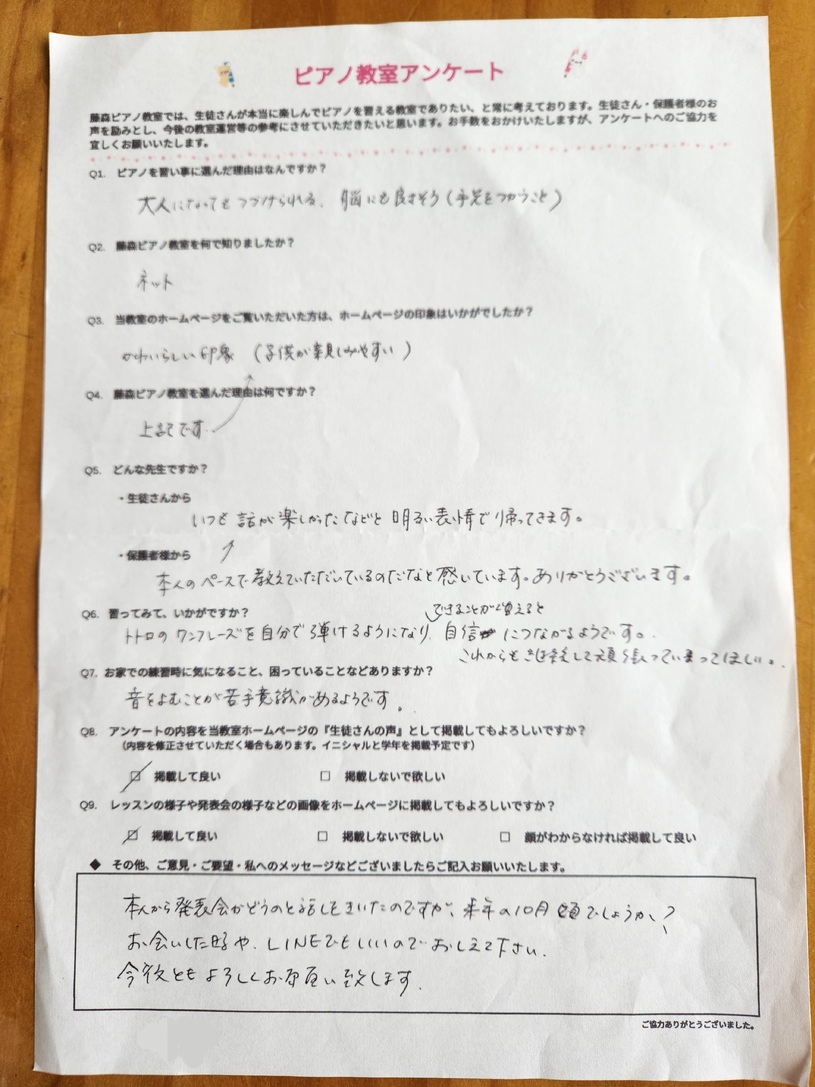 ピアノ教室アンケート
藤森ピアノ教室では、生徒さんが本当に楽しんでピアノを習える教室でありたい、と常に考えております。生徒さん・保護者様のお
声を励みとし、今後の教室運営等の参考にさせていただきたいと思います。お手数をおかけいたしますが、アンケートへのご協力を
宜しくお願いいたします。
Q1. ピアノを習い事に選んだ理由はなんですか？
大人になってもつづけられる、脳にも良さそう(手足をつかうこと)
Q2. 藤森ピアノ教室を何で知りましたか？
ネット
Q3. 当教室のホームページをご覧いただいた方は、ホームページの印象はいかがでしたか？
かわいらしい印象 (子供が親しみやすい)
Q4. 藤森ピアノ教室を選んだ理由は何ですか？
上記です
Q5. どんな先生ですか？
・生徒さんから
いつも話が楽しかったなどと明るい表情で帰ってきます。
・保護者様から
本人のペースで教えていただいているのだなと感じています。ありがとうございます。
Q6. 習ってみて、いかがですか？
できることが増えると
トトロのワンフレーズを自分で弾けるようになり、自信につながるようです。
これからも継続して頑張っていってほしい。
Q7. お家での練習時に気になること、困っていることなどありますか？
音をよむことが苦手意識があるようです。
Q8. アンケートの内容を当教室ホームページの『生徒さんの声』として掲載してもよろしいですか？
（内容を修正させていただく場合もあります。イニシャルと学年を掲載予定です）
☑ 掲載して良い □ 掲載しないで欲しい
Q9. レッスンの様子や発表会の様子などの画像をホームページに掲載してもよろしいですか？
☑ 掲載して良い □ 掲載しないで欲しい □ 顔がわからなければ掲載して良い
◆ その他、ご意見・ご要望・私へのメッセージなどございましたらご記入お願いいたします。
本人から発表会がどうのと話しをきいたのですが、来年の10月頃でしょうか？
お会いした時や、LINEでもいいのでおしえて下さい。
今後ともよろしくお願い致します。
ご協力ありがとうございました。